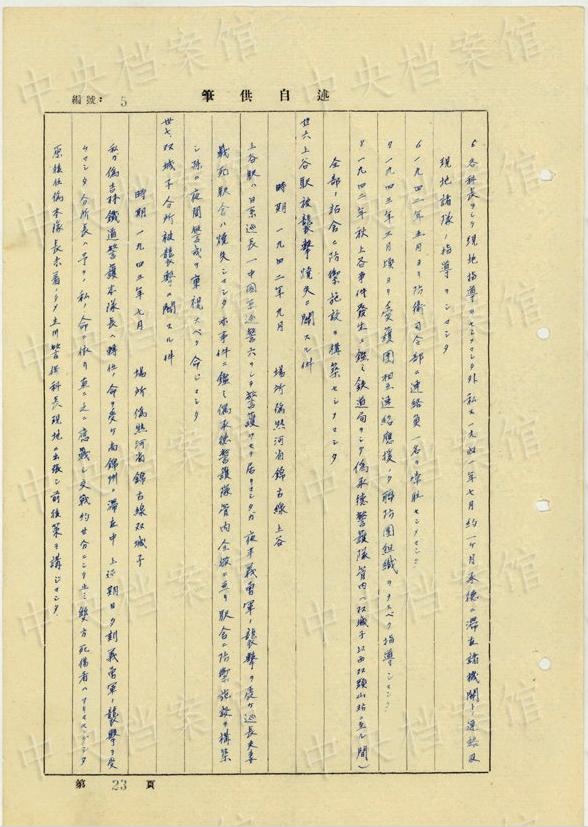 編號: 5
筆供自述
各科長ヲシテ現地指導ヲセシメタ外 私ハ一九四一年七月約一ヶ月承徳ニ滞在諸機関ト連絡及
現地諸隊ノ指導ヲシマシタ
6 一九四二年五月ヨリ防衛司令部ニ連絡員一名ヲ常駐セシメマシタ
7 一九四二年五月頃ヨリ愛護團相互連絡應援ノ聯防團組織ヲナスベク指導シマシタ
8 一九四二年秋上谷事件発生ニ鑑ミ鉄道局ヲシテ偽承徳警護隊管内(双城子以西双頭山站ニ至ル間)
全部ノ站舎ニ防禦施設ヲ構築セシメマシタ
廿六、上谷駅被襲撃焼失ニ関スル件
時期 一九四二年九月 場所 偽熱河省錦古線上谷
上谷駅ハ日系巡長一中国系巡警六ヲシテ警護セシメ居リマシタガ夜半義勇軍ノ襲撃ヲ受ケ巡長夫妻
戦死駅舎ハ焼失シマシタ本事件ニ鑑ミ偽承徳警護隊管内全般ニ亘リ駅舎ニ防禦施設ヲ構築
シ殊ニ夜間警戒ヲ重視スベク命ジマシタ
廿七、双城子分所被襲撃ニ関スル件
時期 一九四三年七月 場所 偽熱河省錦古線双城子
私ガ偽吉林鐵道警護本隊長ヘ轉任ノ命ヲ受ケ尚錦州ニ滞在中 上記期日ノ刻義勇軍ノ襲撃ヲ受
ケマシタ分所長ハ予テノ私ノ命ニ依リ直ニ之ニ應戦シ交戦約廿分ニシテ止ミ雙方死傷者ハアリマセンデシタ
原後任偽本隊長未着ノタメ立川警務科長現地ニ出張シ前後策ヲ講ジマシタ
第 23 頁